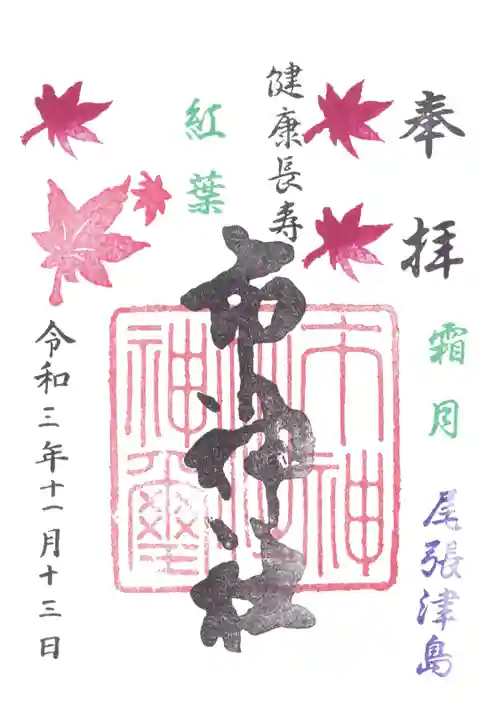 奉拝
霜月
尾張津島
健康長寿
紅葉
市神社
令和三年十一月十三日